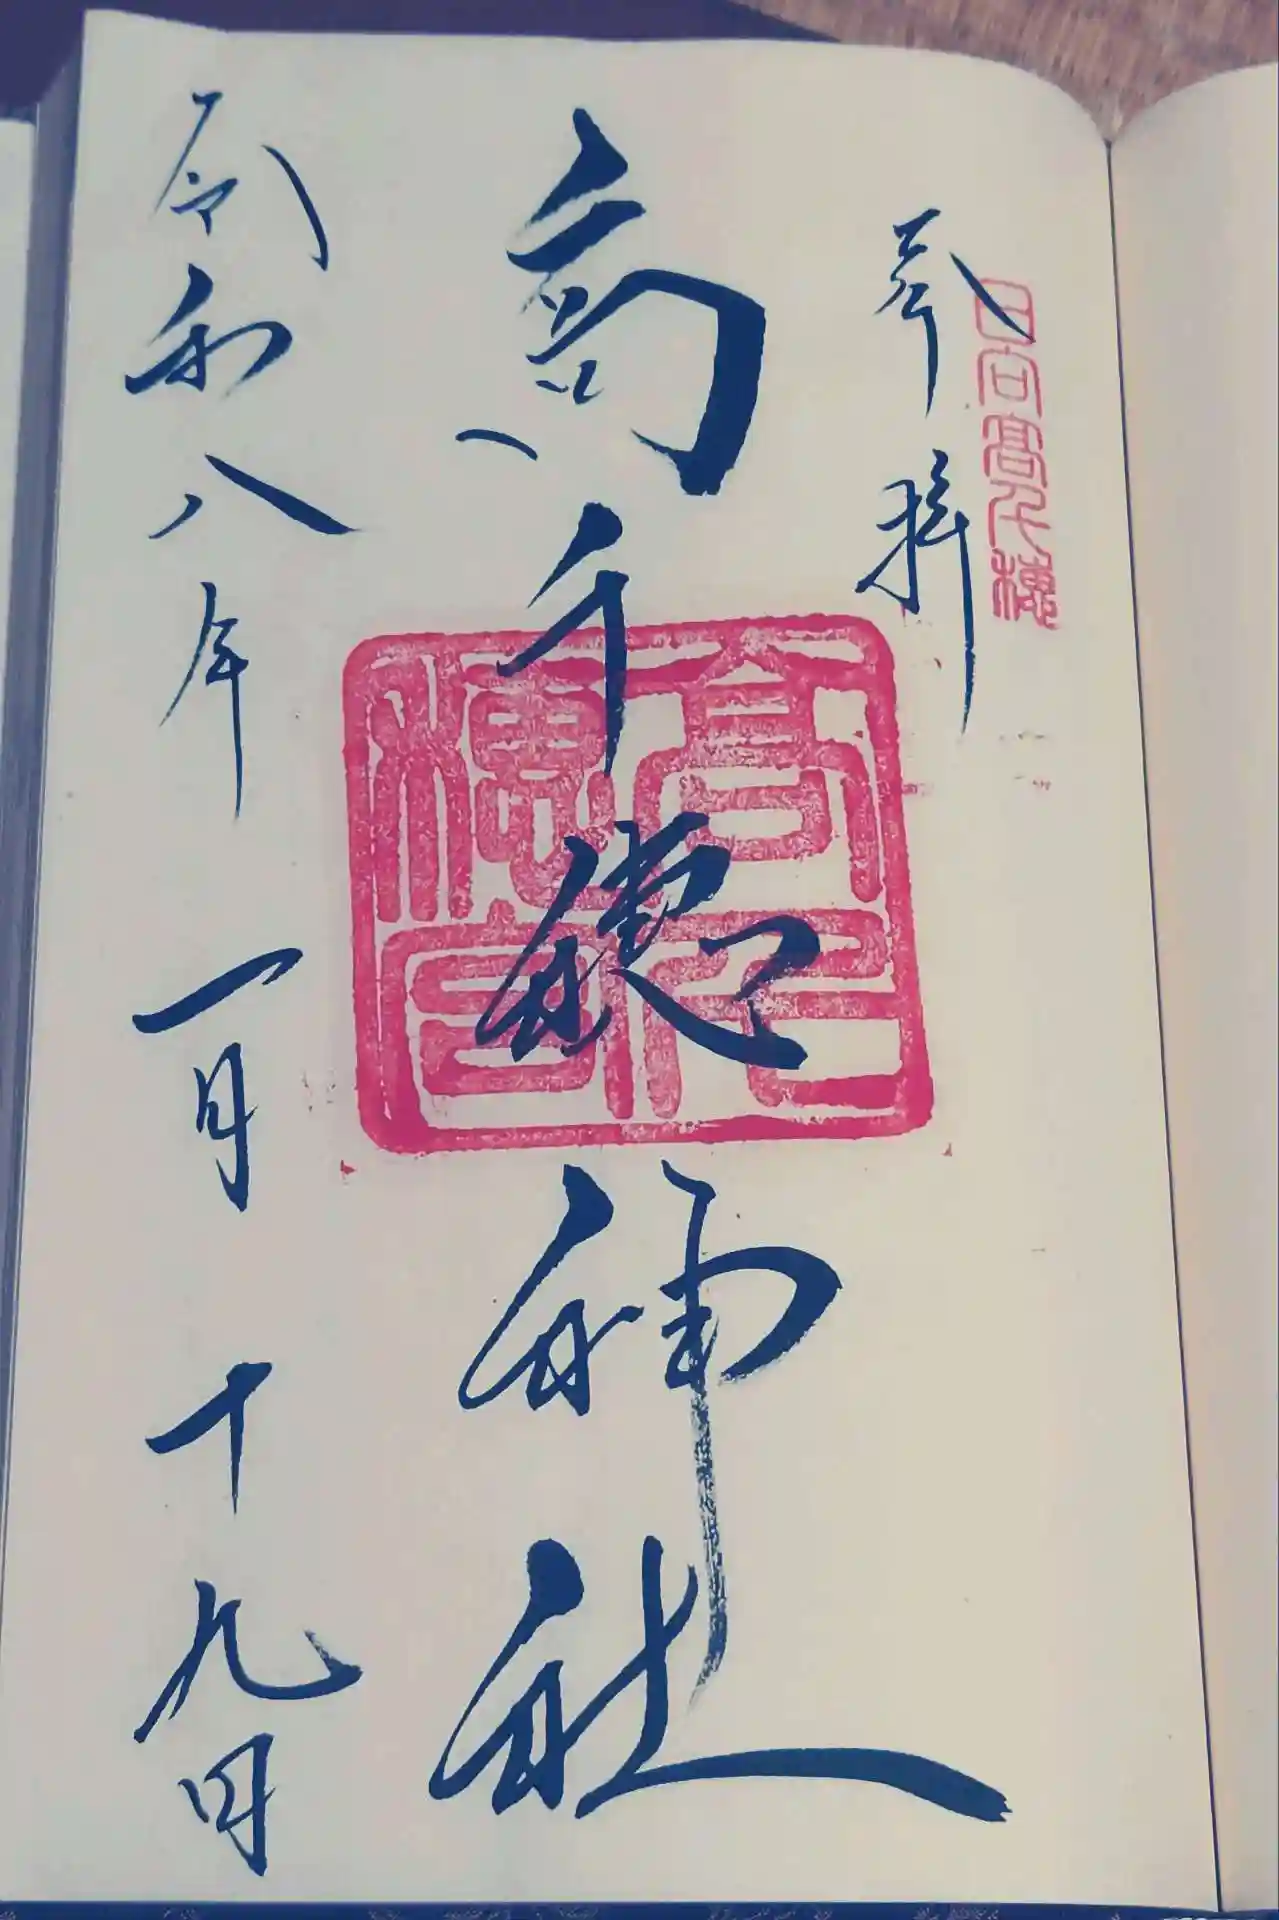 日向高千穂
奉拝
高千穂神社
高千穂宮印
令和八年一月十九日